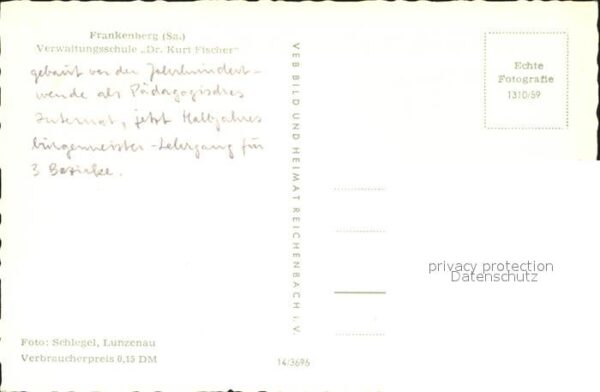 Frankenberg (Sa.)
Verwaltungsschule „Dr. Kurt Fischer"
gebaut vor der Jahrhundert-
wende als Pädagogisches
Internat, jetzt Halbjahres
bürgermeister-Lehrgang für
3 Bezirke.
VEB BILD UND HEIMAT REICHENBACH i. V.
Echte
Fotografie
1310/59
privacy protection
Datenschutz
Foto: Schlegel, Lunzenau
Verbraucherpreis 0,15 DM
14/3696